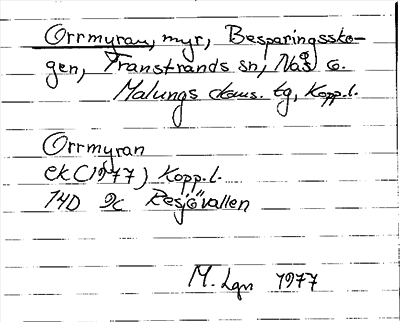 Orrmyran, myr, Besparingssko-
gen, Transtrands sn, Nås o.
Malungs doms. tg, Kopp.l.
Orrmyran
ek (1977) Kopp.l.
14D 2c Resjövallen
M. Lgn 1977